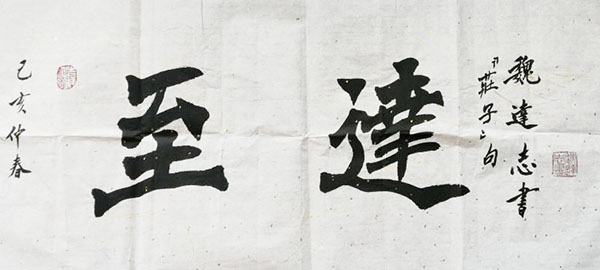 魏達志書
莊子句
達至
己亥仲春